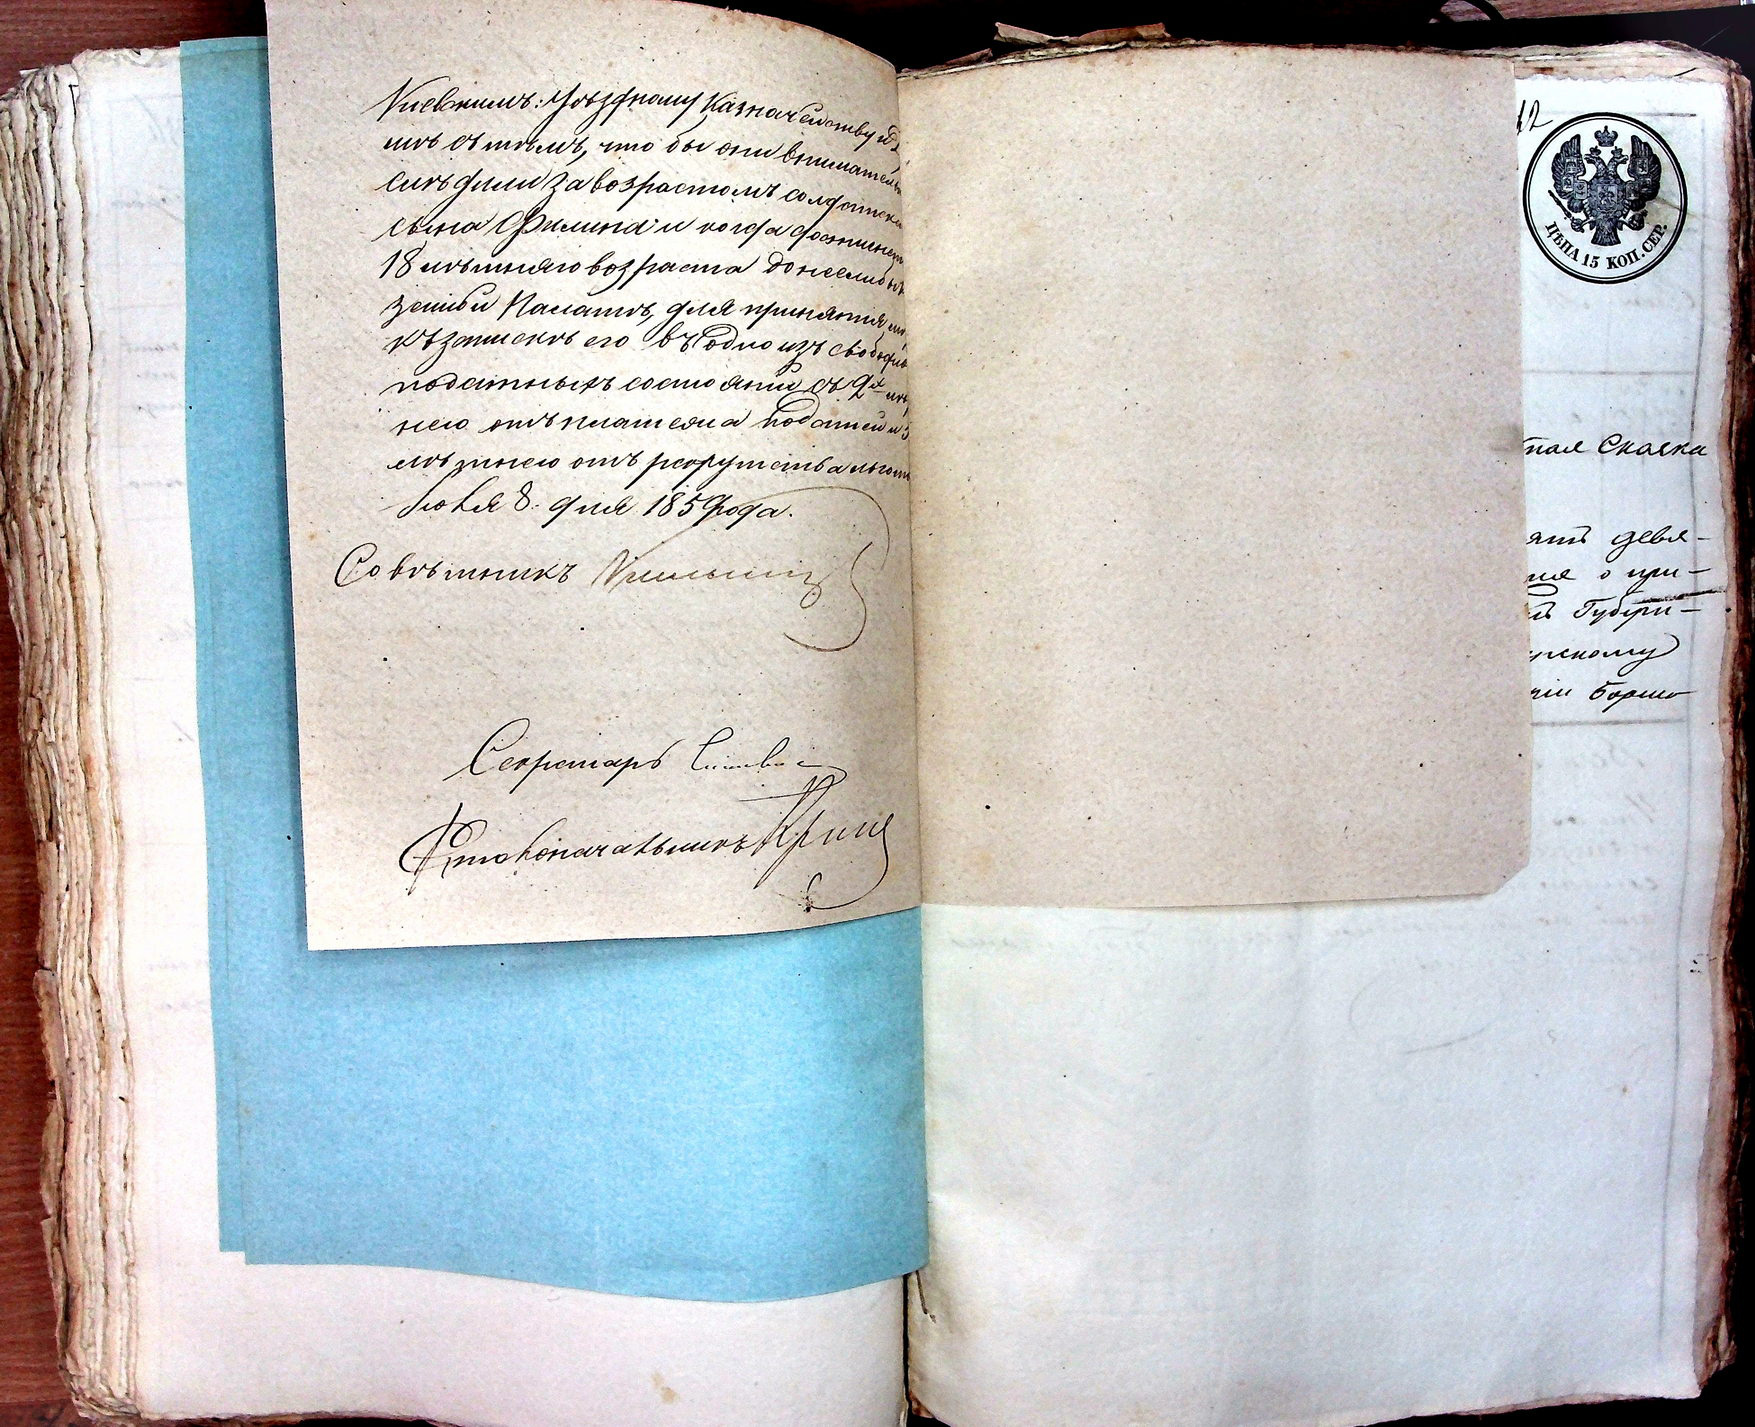 Киевскимъ: Уѣздному Казначейству и Д
мѣ съ тѣмъ, что бы они внимательно
слѣдили за возрастомъ солдатска
сына Филипа и когда достигнетъ
18 лѣтняго возраста донесли бы К
зенной Палатѣ, для принятія мѣ
къ запискѣ его въ одно изъ свобод
податныхъ состояній съ 9х лѣт
нею отъ платежа податей и 5
лѣтнею отъ рекрутства льгот
Іюля 8 дня 1859 года.
Совѣтникъ
Секретарь
Столоначальникъ
42
ЦѢНА 15 КОП. СЕР.
тая Сказка
ятъ девя-
ия о при-
Губерн-
рскому